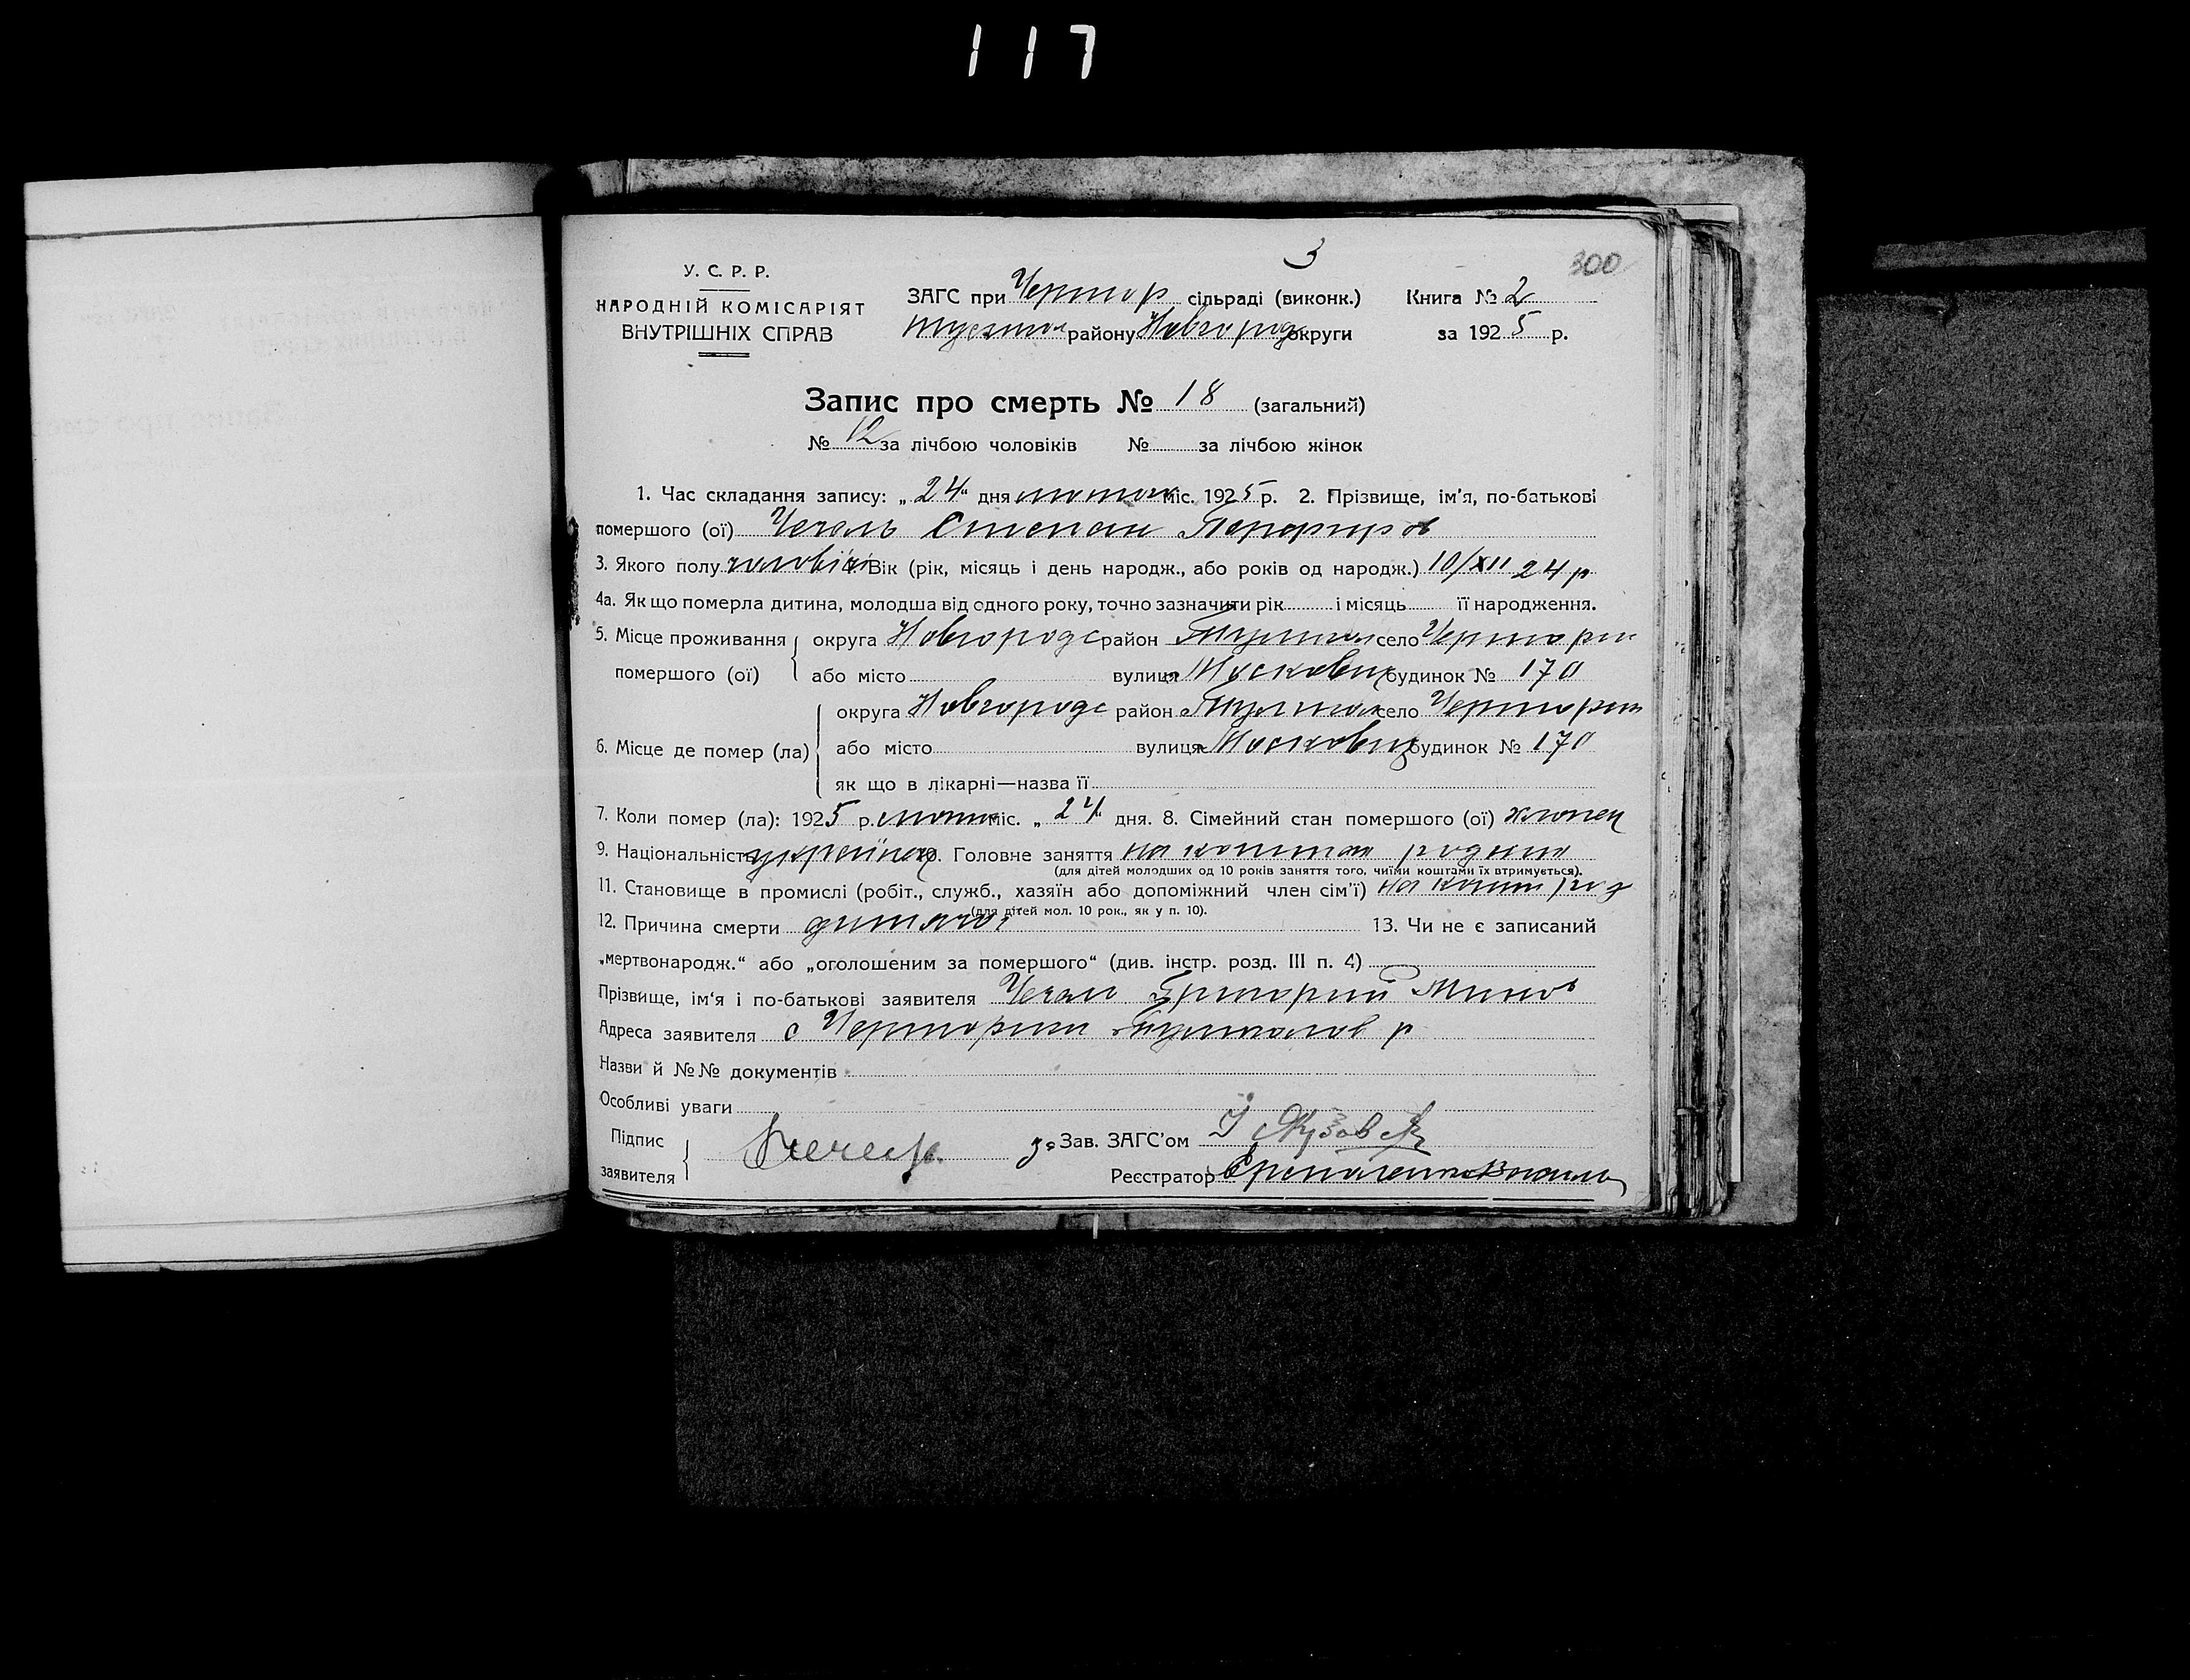 117
3
300
У. С. Р. Р.
НАРОДНІЙ КОМІСАРІЯТ
ВНУТРІШНІХ СПРАВ
ЗАГС при Чертор сільраді (виконк.) Книга № 2
району Новгород округи за 1925 р.
Запис про смерть № 18 (загальний)
№ 12 за лічбою чоловіків № за лічбою жінок
1. Час складання запису: „24“ дня лютого міс. 1925 р. 2. Прізвище, ім'я, по-батькові
помершого (ої) Чечель Степан Порфиров
3. Якого полу чоловічої Вік (рік, місяць і день народж., або років од народж.) 10/XII 24 р
4а. Як що померла дитина, молодша від одного року, точно зазначити рік і місяць її народження.
5. Місце проживання округа Новгородс район село Черториги
помершого (ої) або місто вулиця Московк будинок № 170
округа Новгородс район село Черториги
6. Місце де помер (ла) або місто вулиця Московк будинок № 170
як що в лікарні—назва її
7. Коли помер (ла): 1925 р. лютого міс. „24“ дня. 8. Сімейний стан помершого (ої) хлопец
9. Національність українец 10. Головне заняття на коштах родини
(для дітей молодших од 10 років заняття того, чиїми коштами їх втримується).
11. Становище в промислі (робіт., служб., хазяїн або допоміжний член сім'ї) на кошт род
(для дітей мол. 10 рок., як у п. 10).
12. Причина смерти дитячої 13. Чи не є записаний
„мертвонародж.“ або „оголошеним за помершого“ (див. інстр. розд. III п. 4)
Прізвище, ім'я і по-батькові заявителя Чечель Григорий
Адреса заявителя с Черториги р
Назви й №№ документів
Особливі уваги
Підпис
заявителя
за Зав. ЗАГС'ом
Реєстратор